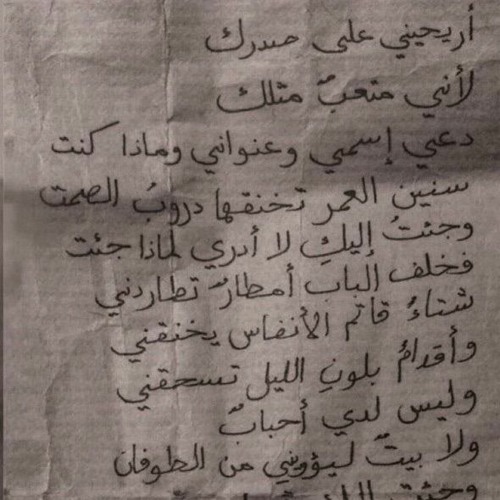 أريحيني على صدرك
لأني متعبٌ مثلك
دعي إسمي وعنواني وماذا كنت
سنين العمر تخنقها دروبُ الصمت
وجئتُ إليكِ لا أدري لماذا جئت
فخلف الباب أمطارٌ تطاردني
شتاءُ قاتم الأنفاس يخنقني
وأقدامٌ بلونِ الليل تسحقني
وليس لدي أحبابٌ
ولا بيتٌ ليؤويني من الطوفان